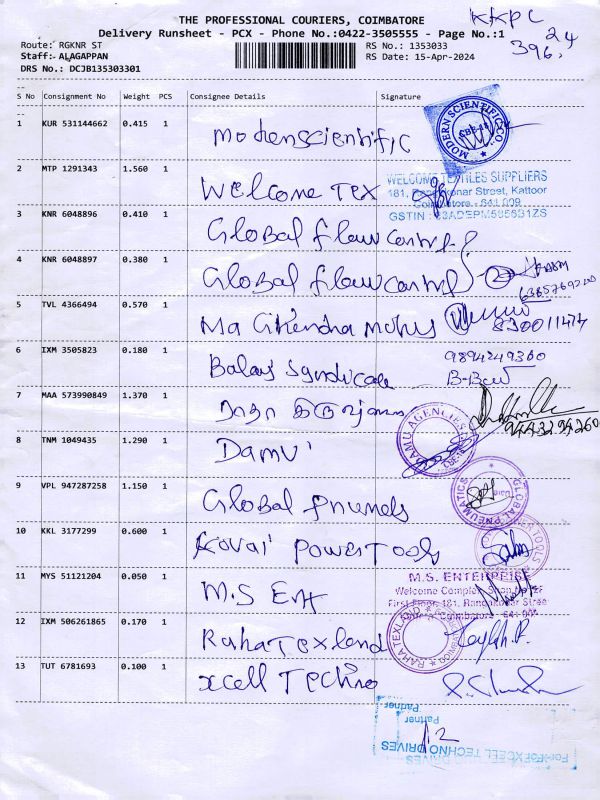 THE PROFESSIONAL COURIERS, COIMBATORE
KKPC
Delivery Runsheet - PCX - Phone No.:0422-3505555 - Page No.:1
24
396.
Route: RGKNR ST
RS No.: 1353033
Staff: ALAGAPPAN
RS Date: 15-Apr-2024
DRS No.: DCJB135303301
S No Consignment No Weight PCS Consignee Details Signature
1 KUR 531144662 0.415 1 Modern scientific
MODERN SCIENTIFIC CO. CBE-18
2 MTP 1291343 1.560 1 Welcome Tex
WELCOME TEXTILES SUPPLIERS
181, Rangakonar Street, Kattoor
Coimbatore - 641 009
GSTIN :
3 KNR 6048896 0.410 1 Global flow control
4 KNR 6048897 0.380 1 Global flow control
5 TVL 4366494 0.570 1
6 IXM 3505823 0.180 1 Balaji Syndicate
9894249360
7 MAA 573990849 1.370 1
9443294260
8 TNM 1049435 1.290 1 Damu
DAMU AGENCIES
9 VPL 947287258 1.150 1
GLOBAL PNEUMATICS
10 KKL 3177299 0.600 1 Kovai Power Tools
11 MYS 51121204 0.050 1 M.S Ent
M.S. ENTERPRISE
Welcome Complex
12 IXM 506261865 0.170 1 Raha Texland
RAHA TEXLAND
13 TUT 6781693 0.100 1 xcell Techno
Partner
Partner
For EXCELL TECHNO DRIVES
12